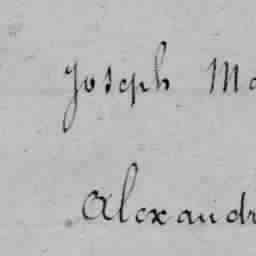 Joseph Ma
Alexandr